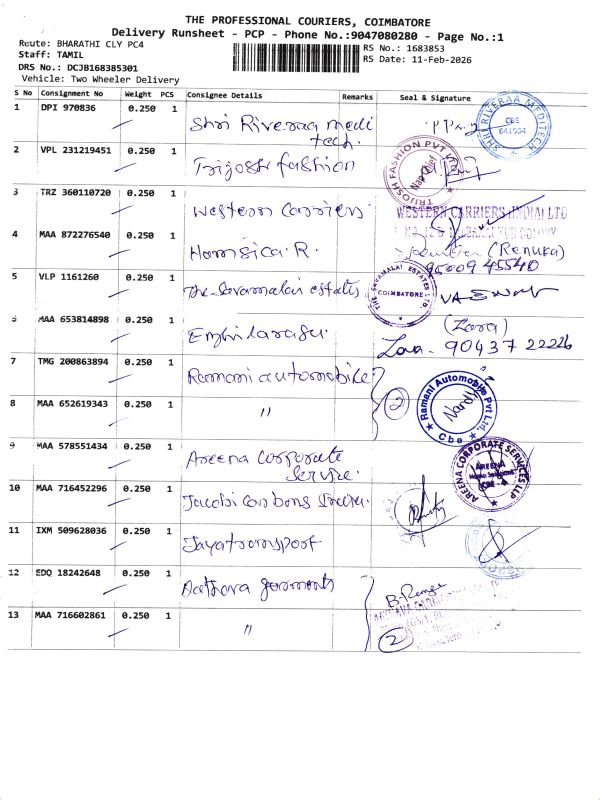 THE PROFESSIONAL COURIERS, COIMBATORE
Delivery Runsheet - PCP - Phone No.:9047080280 - Page No.:1
Route: BHARATHI CLY PC4
RS No.: 1683853
Staff: TAMIL
RS Date: 11-Feb-2026
DRS No.: DCJB168385301
Vehicle: Two Wheeler Delivery
S No Consignment No Weight PCS Consignee Details Remarks Seal & Signature
1 DPI 970836 0.250 1 Shri Riveraa medi
tech.
SHRI RIVERAA MEDITECH
CBE
641004
2 VPL 231219451 0.250 1 Trijosh fashion
TRIJOSH FASHION PVT LTD
3 TRZ 360110720 0.250 1 Western Carriers
WESTERN CARRIERS (INDIA) LTD
4 MAA 872276540 0.250 1 Hamsica. R.
(Renuka)
95009 45540
5 VLP 1161260 0.250 1 The Savamalai estates
THE SAVAMALAI ESTATES LTD
COIMBATORE
6 MAA 653814898 0.250 1 Ezhilarasu.
(Zara)
Zara - 90437 22226
7 TMG 200863894 0.250 1 Ramani automobile
8 MAA 652619343 0.250 1 "
2
Ramani Automobile Pvt Ltd.
Cbe
9 MAA 578551434 0.250 1 Areena Corporate
Service.
AREENA CORPORATE SERVICES LLP
AREENA
10 MAA 716452296 0.250 1 Jacobi Carbons
11 IXM 509628036 0.250 1 Jayatransport
12 EDQ 18242648 0.250 1 garments
13 MAA 716602861 0.250 1 "
2